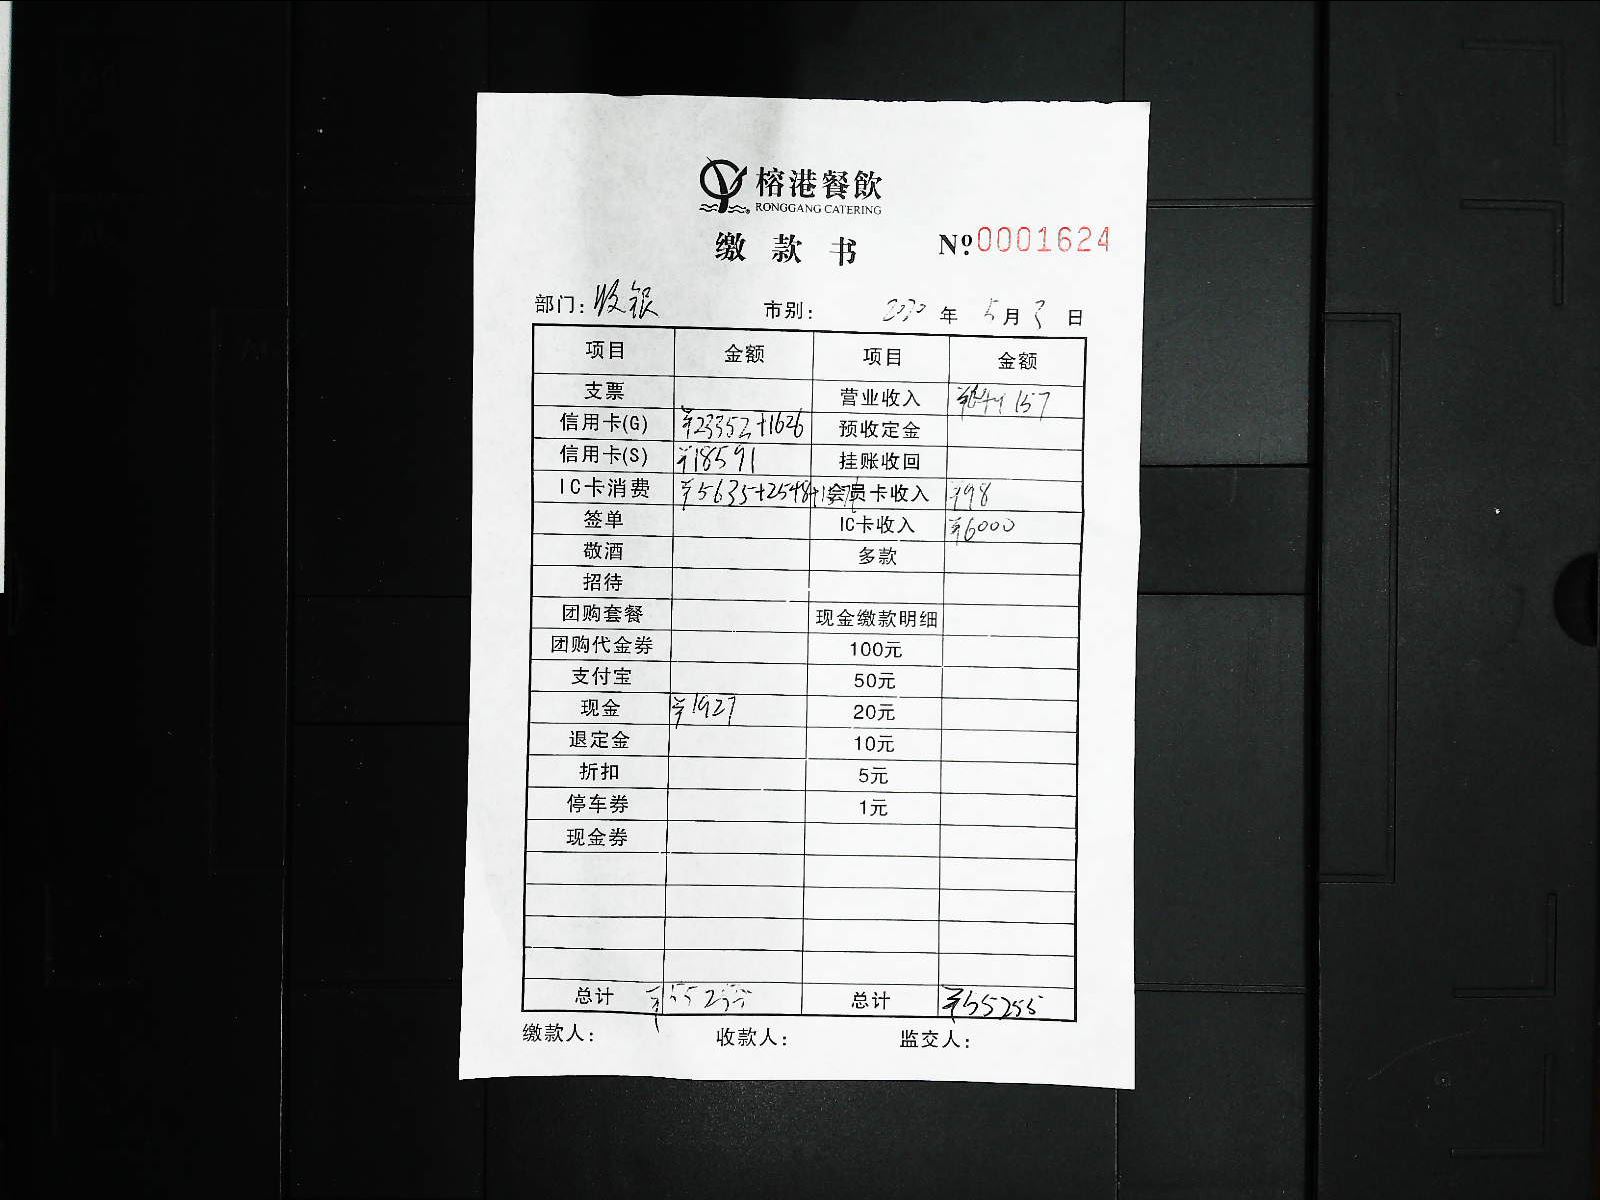 榕港餐飲
RONGGANG CATERING
缴款书 Nº:0001624
部门: 收银 市别: 2020 年 5 月 3 日
项目 金额 项目 金额
支票 营业收入 ¥49157
信用卡(G) ¥23352+1626 预收定金
信用卡(S) ¥18591 挂账收回
IC卡消费 ¥5635+2548+1576 会员卡收入 ¥98
签单 IC卡收入 ¥6000
敬酒 多款
招待
团购套餐 现金缴款明细
团购代金券 100元
支付宝 50元
现金 ¥1927 20元
退定金 10元
折扣 5元
停车券 1元
现金券
总计 ¥55255 总计 ¥55255
缴款人: 收款人: 监交人: